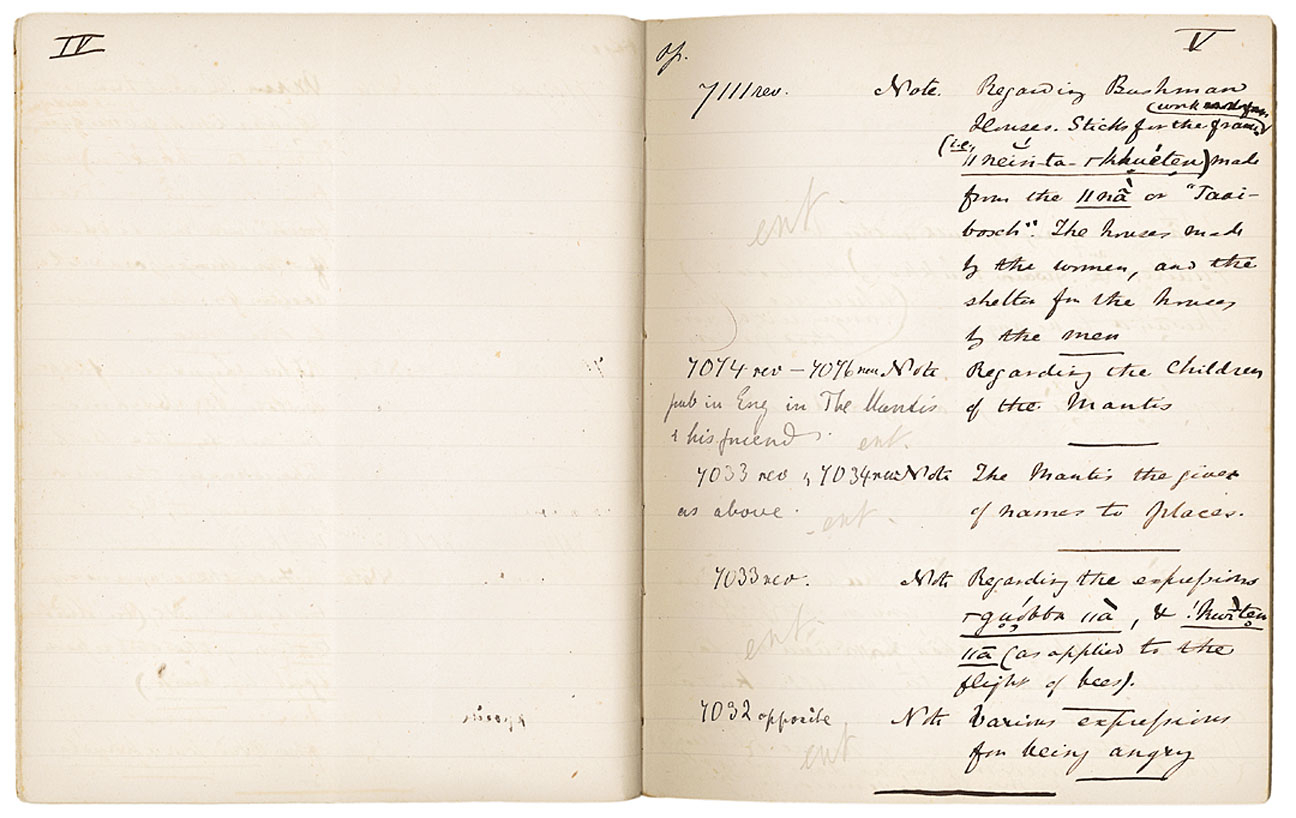 IV
V
op.
7111 rev. Note. Regarding Bushman
Houses. Sticks for the frame
(i.e.
made
from the ǁnā̀ or "Taai-
bosch". The houses made
by the women, and the
shelter for the houses
by the men
ent.
7074 rev – 7076 rev Note Regarding the Children
of the Mantis
pub in Eng in The Mantis
& his friend). ent.
7033 rev, 7034 rev Note The Mantis the giver
of names to places.
as above. ent.
7033 rev. Note Regarding the expressions
ǁā̀, &
ǁā (as applied to the
flight of bees).
ent
7032 opposite Note Various expressions
for being angry
ent